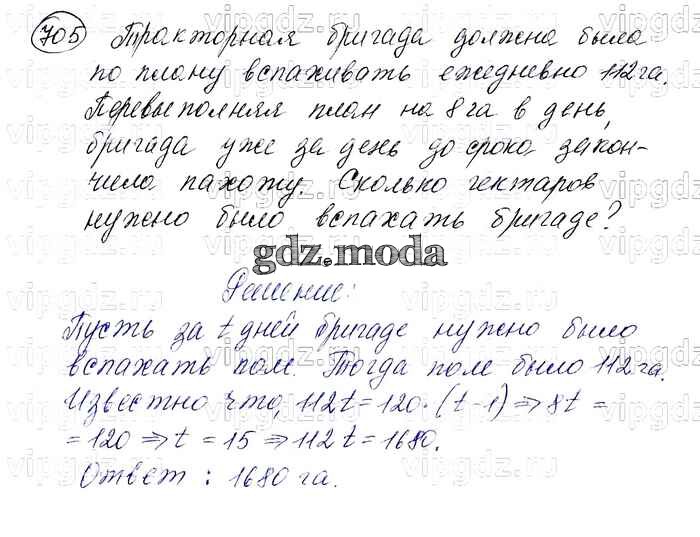 705 Тракторная бригада должна была
по плану вспахивать ежедневно 112 га.
Перевыполняя план на 8 га в день,
бригада уже за день до срока закон-
чила пахоту. Сколько гектаров
нужно было вспахать бригаде?
gdz.moda
Решение:
Пусть за t дней бригаде нужно было
вспахать поле. Тогда поле было 112 га.
Известно что, 112t = 120 · (t - 1) ⇒ 8t =
= 120 ⇒ t = 15 ⇒ 112t = 1680.
Ответ : 1680 га.